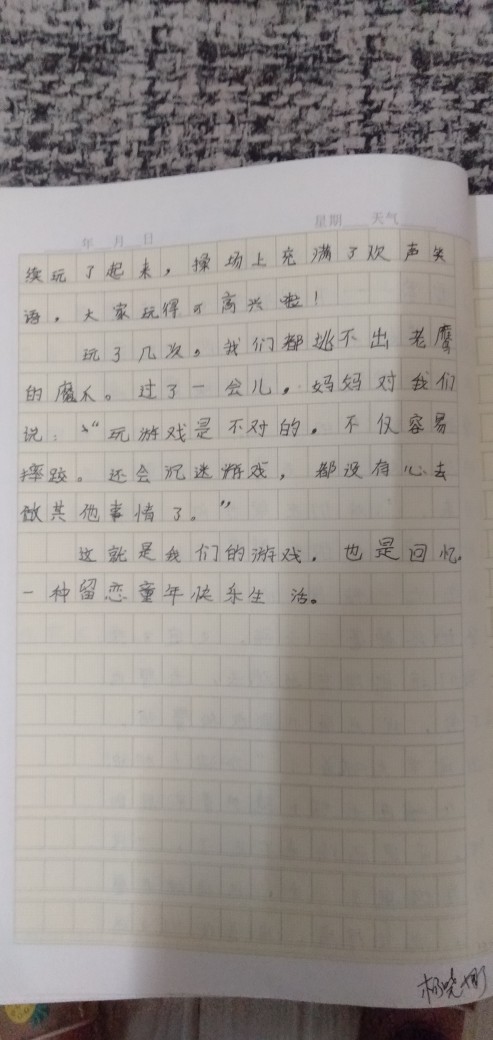 年 月 日 星期 天气
续玩了起来，操场上充满了欢声笑
语。大家玩得可高兴啦！
玩了几次，我们都逃不出老鹰
的魔爪。过了一会儿，妈妈对我们
说：“玩游戏是不对的。不仅容易
摔跤。还会沉迷游戏，都没有心去
做其他事情了。”
这就是我们的游戏，也是回忆，
一种留恋童年快乐生活。